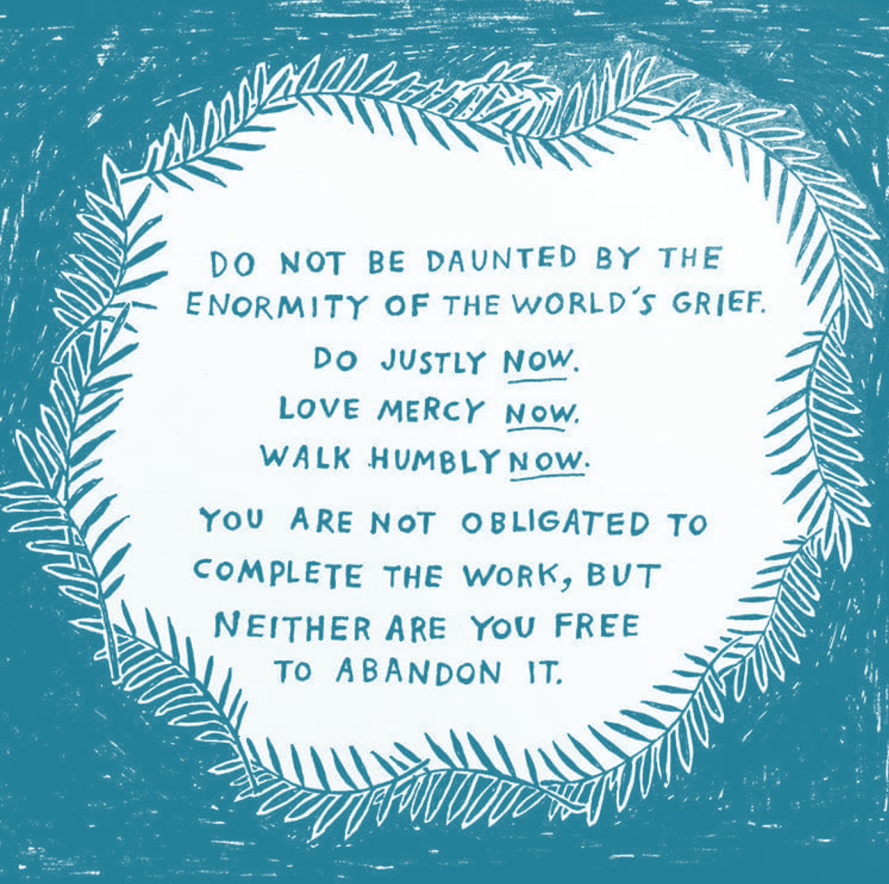 DO NOT BE DAUNTED BY THE
ENORMITY OF THE WORLD'S GRIEF.
DO JUSTLY NOW.
LOVE MERCY NOW.
WALK HUMBLY NOW.
YOU ARE NOT OBLIGATED TO
COMPLETE THE WORK, BUT
NEITHER ARE YOU FREE
TO ABANDON IT.